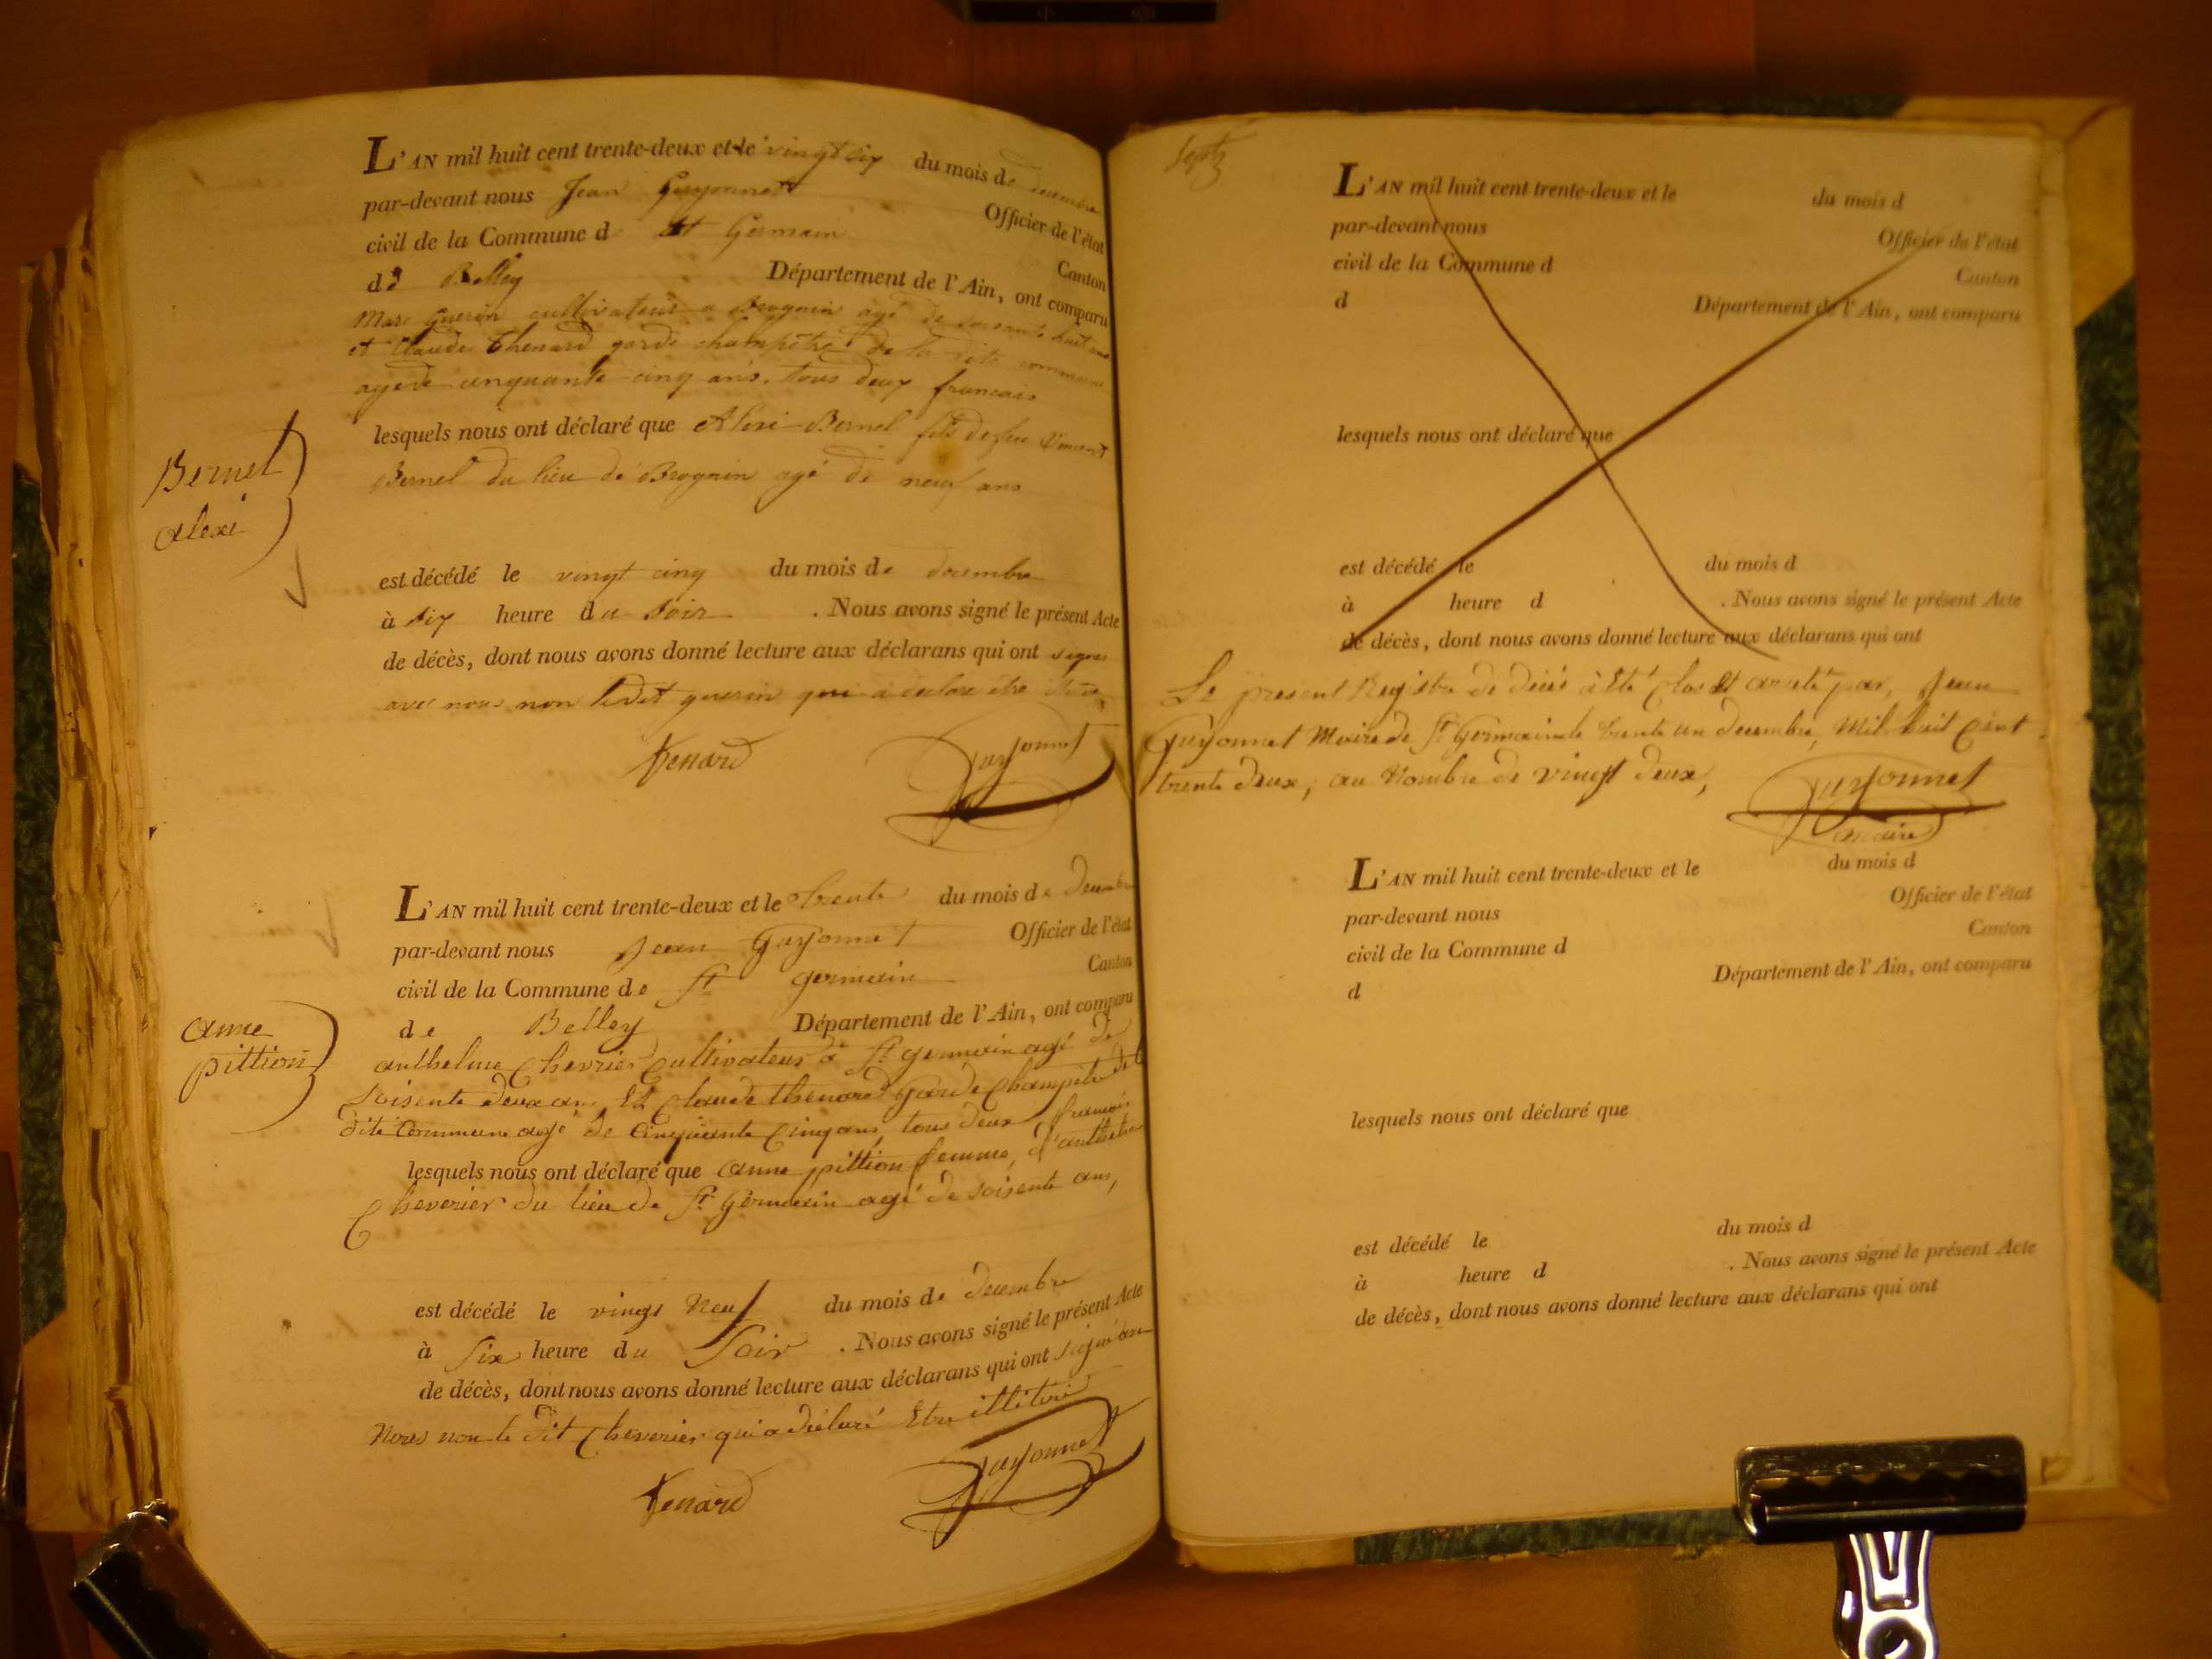 L'AN mil huit cent trente-deux et le vingt six du mois de decembre
par-devant nous Jean Guyonnet Officier de l'état
civil de la Commune d St Germain Canton
de Belley Département de l'Ain, ont comparu
Marc Guerin cultivateur a Brognin agé de soisante huit ans
et Claude Thenard garde champètre de la dite commune
agé de cinquante cinq ans. tous deux francais
lesquels nous ont déclaré que Alexi Bernel fils de feu Vincent
Bernel du lieu de Brognin agé de neuf ans
Bernel
alexi
est décédé le vingt cinq du mois de decembre
à six heure du soir . Nous avons signé le présent Acte
de décès, dont nous avons donné lecture aux déclarans qui ont signés
avec nous non ledit guerin qui a declare être
Tenard Guyonnet
L'AN mil huit cent trente-deux et le trente du mois de decembre
par-devant nous Jean Guyonnet Officier de l'état
civil de la Commune de St germain Canton
de Belley Département de l'Ain, ont comparu
anne
pittion
anthelme Chevrier Cultivateur à St germain agé de
soisente deux an Et Claude thenard Garde Champètre de la
dite Commune agé de Cinquante Cinq ans, tous deux francois
lesquels nous ont déclaré que anne pittion femme, d'anthelme
Cheverier du lieu de St Germain agé de soisente ans,
est décédé le vingt Neuf du mois de decembre
à six heure du Soir . Nous avons signé le présent Acte
de décès, dont nous avons donné lecture aux déclarans qui ont signé avec
Nous non le dit Cheverier qui a déclaré Etre illitéré
Tenard Guyonnet
L'AN mil huit cent trente-deux et le du mois d
par-devant nous Officier de l'état
civil de la Commune d Canton
d Département de l'Ain, ont comparu
lesquels nous ont déclaré que
est décédé le du mois d
à heure d . Nous avons signé le présent Acte
de décès, dont nous avons donné lecture aux déclarans qui ont
Le present Registre de décés à Eté Clos et areté par, Jean
Guyonnet Maire de St Germain le trente un decembre, Mil huit Cent
trente deux, au Nombre de vingt deux,
Guyonnet
maire
L'AN mil huit cent trente-deux et le du mois d
par-devant nous Officier de l'état
civil de la Commune d Canton
d Département de l'Ain, ont comparu
lesquels nous ont déclaré que
est décédé le du mois d
à heure d . Nous avons signé le présent Acte
de décès, dont nous avons donné lecture aux déclarans qui ont